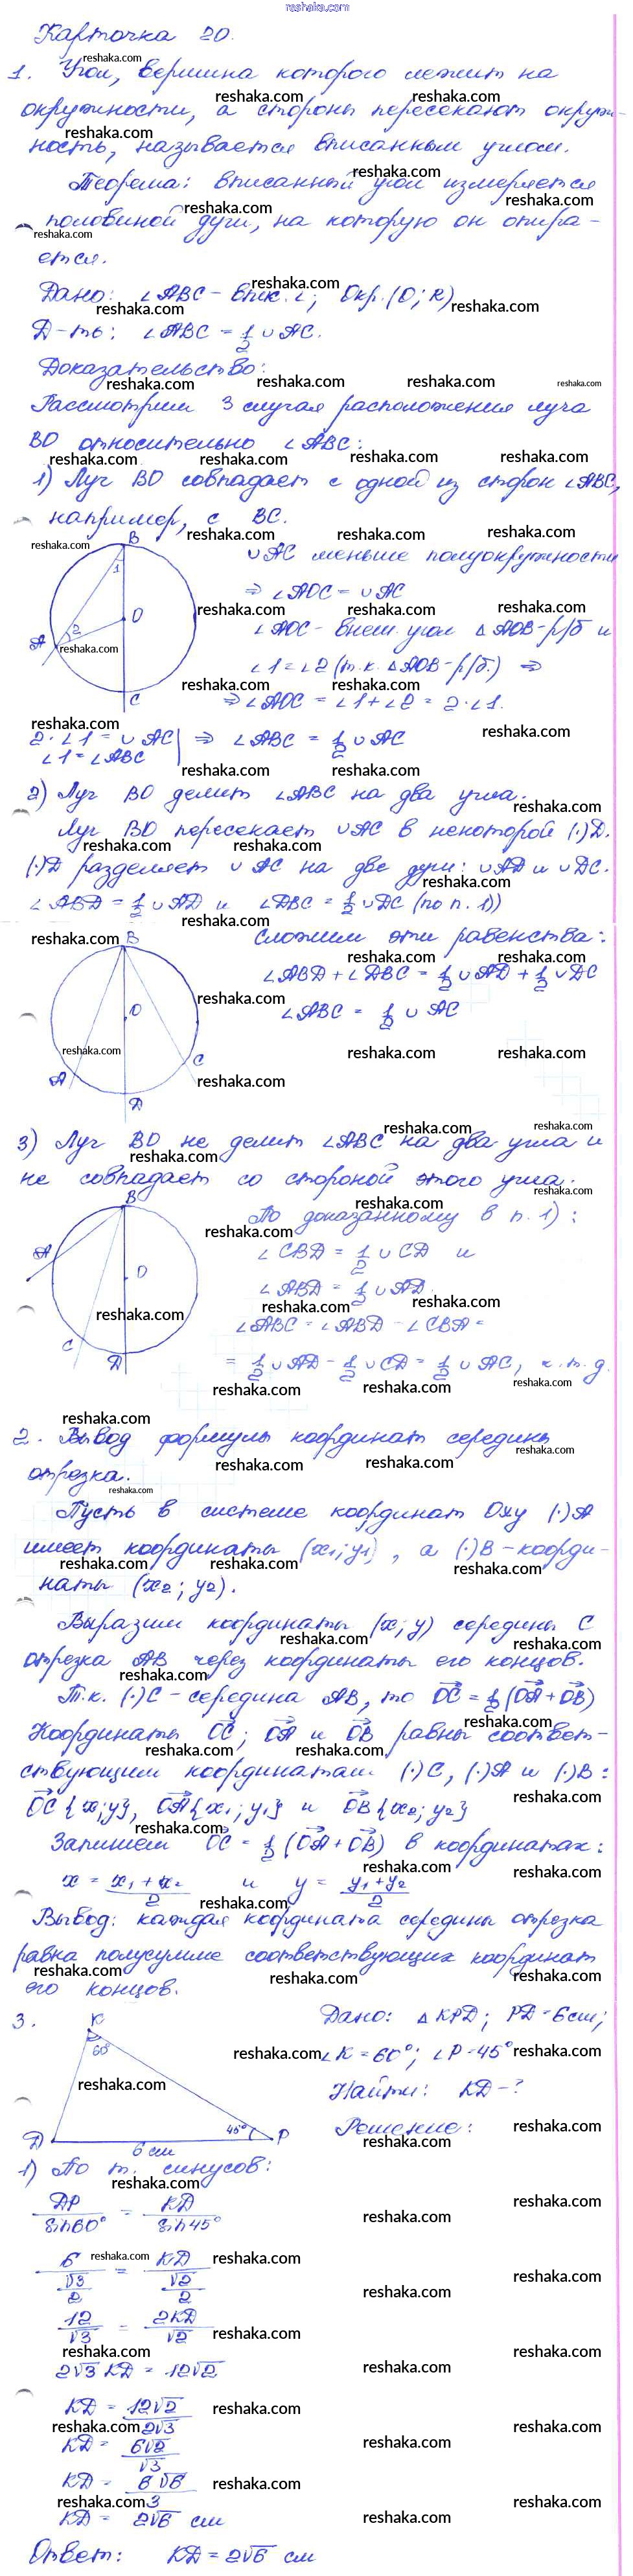 reshaka.com
Карточка 20.
1. Угол, вершина которого лежит на
окружности, а стороны пересекают окруж-
ность, называется вписанным углом.
Теорема: вписанный угол измеряется
половиной дуги, на которую он опира-
ется.
Дано: ∠ABC - впис. ∠; Окр.(O; R)
Д-ть: ∠ABC = 1/2 ∪AC.
Доказательство:
Рассмотрим 3 случая расположения луча
BO относительно ∠ABC:
1) Луч BO совпадает с одной из сторон ∠ABC,
например, с BC.
B
1
O
2
A
C
∪AC меньше полуокружности
⇒ ∠AOC = ∪AC
∠AOC - внеш. угол △AOB - р/б и
∠1 = ∠2 (т.к. △AOB - р/б.) ⇒
⇒ ∠AOC = ∠1 + ∠2 = 2·∠1.
2·∠1 = ∪AC | ⇒ ∠ABC = 1/2 ∪AC
∠1 = ∠ABC
2) Луч BO делит ∠ABC на два угла.
Луч BO пересекает ∪AC в некоторой (·)D.
(·)D разделяет ∪AC на две дуги: ∪AD и ∪DC.
∠ABD = 1/2 ∪AD и ∠DBC = 1/2 ∪DC (по п. 1))
B
O
A
C
D
Сложим эти равенства:
∠ABD + ∠DBC = 1/2 ∪AD + 1/2 ∪DC
∠ABC = 1/2 ∪AC
3) Луч BO не делит ∠ABC на два угла и
не совпадает со стороной этого угла.
B
A
O
C
D
По доказанному в п. 1):
∠CBD = 1/2 ∪CD и
∠ABD = 1/2 ∪AD.
∠ABC = ∠ABD - ∠CBA =
= 1/2 ∪AD - 1/2 ∪CD = 1/2 ∪AC, ч.т.д.
2. Вывод формулы координат середины
отрезка.
Пусть в системе координат Oxy (·)A
имеет координаты (x1; y1), а (·)B - коорди-
наты (x2; y2).
Выразим координаты (x; y) середины C
отрезка AB через координаты его концов.
Т.к. (·)C - середина AB, то OC = 1/2 (OA + OB)
Координаты OC; OA и OB равны соответ-
ствующим координатам (·)C, (·)A и (·)B:
OC {x; y}, OA {x1; y1} и OB {x2; y2}
Запишем OC = 1/2 (OA + OB) в координатах:
x = (x1 + x2)/2 и y = (y1 + y2)/2
Вывод: каждая координата середины отрезка
равна полусумме соответствующих координат
его концов.
3.
K
60°
45°
D
P
6 см
Дано: △KPD; PD = 6см;
∠K = 60°; ∠P = 45°
Найти: KD - ?
Решение:
1) По т. синусов:
DP/sin60° = KD/sin45°
6/(√3/2) = KD/(√2/2)
12/√3 = 2KD/√2
2√3 KD = 12√2
KD = 12√2/2√3
KD = 6√2/√3
KD = 6√6/3
KD = 2√6 см
Ответ: KD = 2√6 см